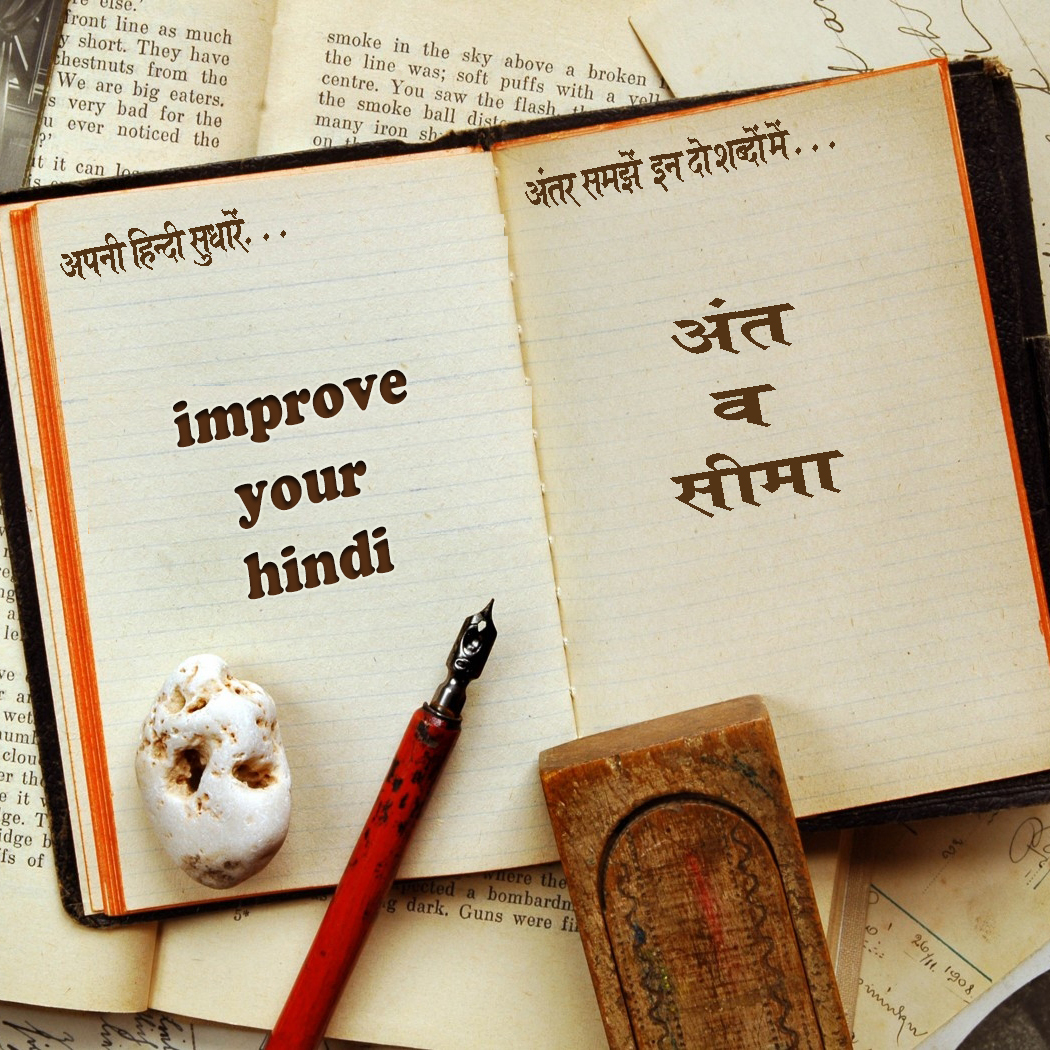 re else.'
front line as much
y short. They have
chestnuts from the
We are big eaters.
s very bad for the
u ever noticed the
?'
smoke in the sky above a broken
the line was; soft puffs with a
centre. You saw the flash,
the smoke ball
many iron
on
अपनी हिन्दी सुधारें. . .
improve
your
hindi
अंतर समझें इन दो शब्दों में . . .
अंत
व
सीमा
where the
a
dark. Guns were
26/11. 1908.